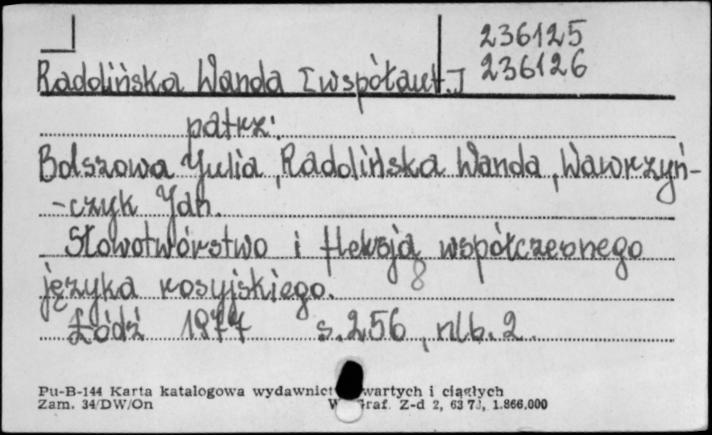 236125
Radolińska Wanda [współaut.] 236126
patrz:
Bolszowa Julia, Radolińska Wanda, Wawrzyń-
-czyk Jan.
Słowotwórstwo i fleksją współczesnego
języka rosyjskiego.
Łódź 1977 s. 256, nlb. 2.
Pu-B-144 Karta katalogowa wydawnict wartych i ciągłych
Zam. 34/DW/On Graf. Z-d 2, 1.866.000